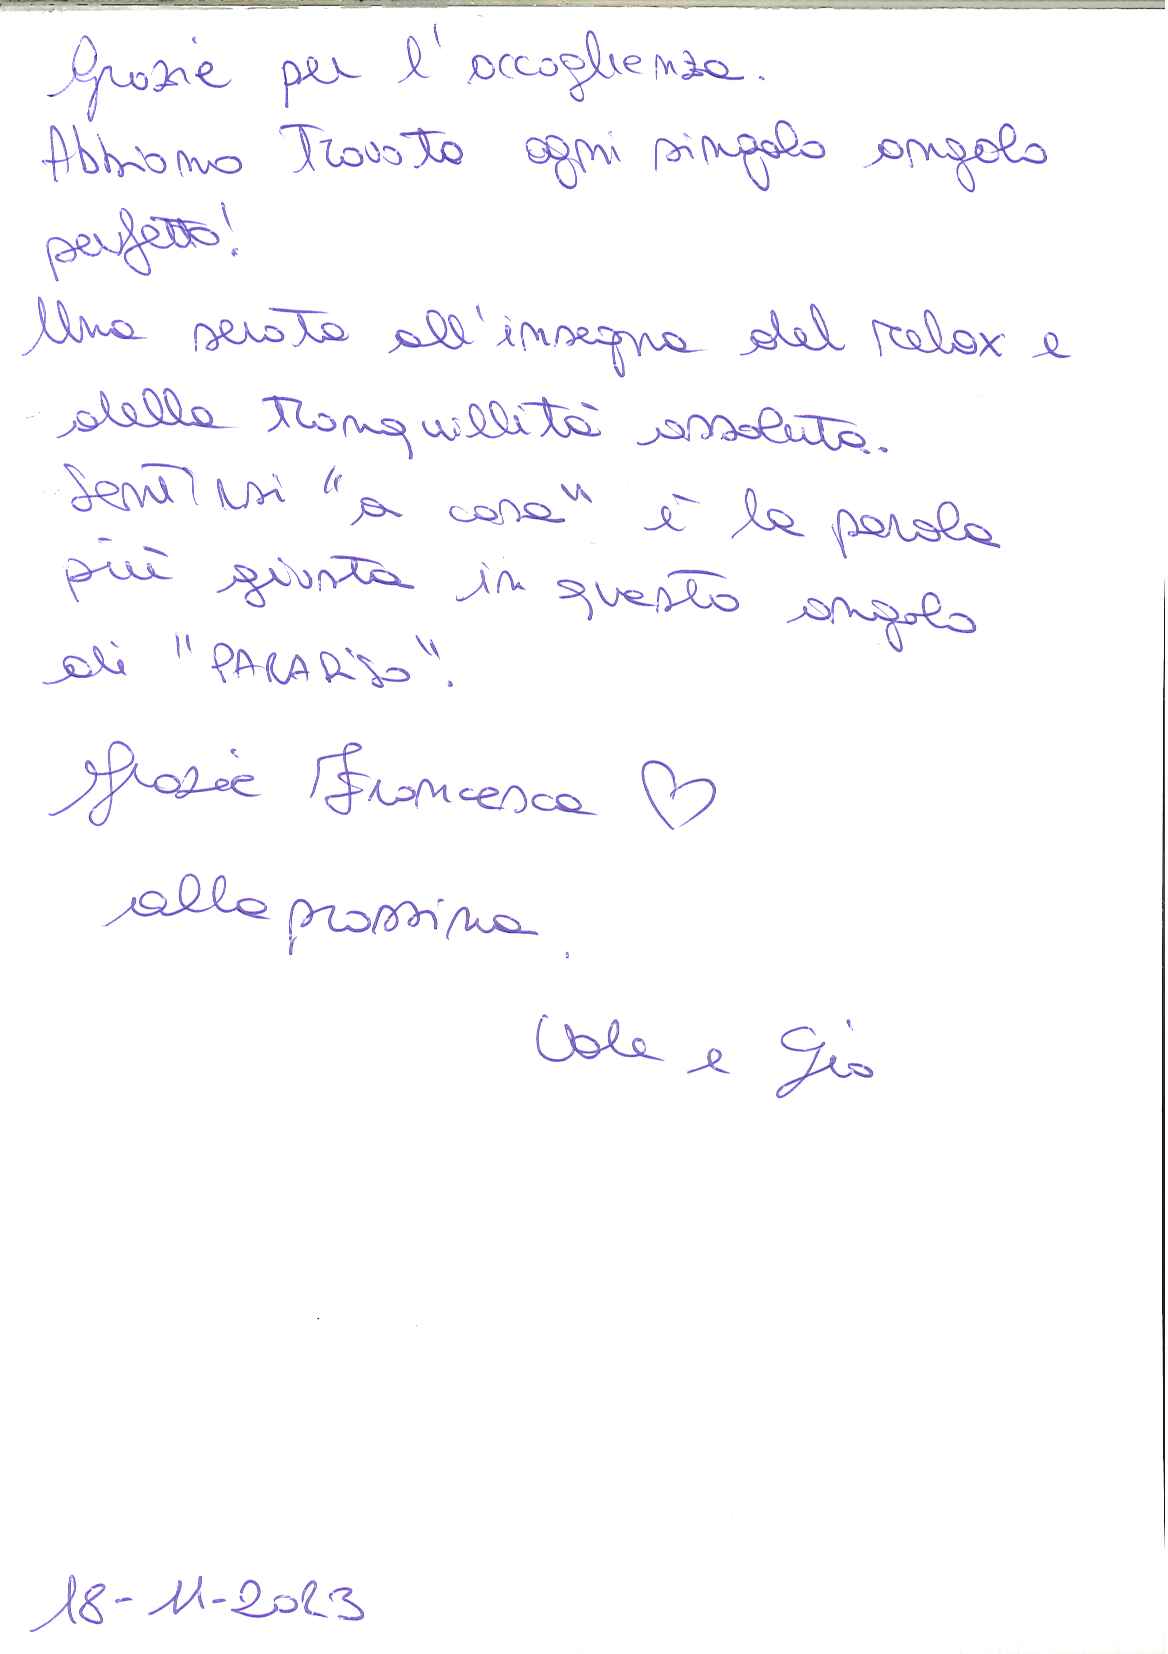 Grazie per l'accoglienza.
Abbiamo trovato ogni singolo angolo
perfetto!
Una serata all'insegna del relax e
della tranquillità assoluta.
Sentirsi "a casa" è la parola
più giusta in questo angolo
di "PARADISO".
Grazie Francesca ♡
alla prossima.
Vale e Giò
18-11-2023